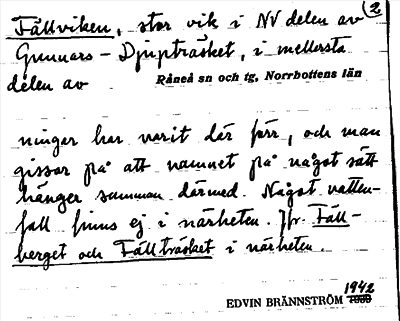 Fällviken, stor vik i NV delen av (2
Gunnars-Djupträsket, i mellersta
delen av Råneå sn och tg, Norrbottens län
ningar har varit där förr, och man
gissar på att namnet på något sätt
hänger samman därmed. Något vatten-
fall finns ej i närheten. Jfr. Fäll-
berget och Fällträsket i närheten.
1942
EDVIN BRÄNNSTRÖM